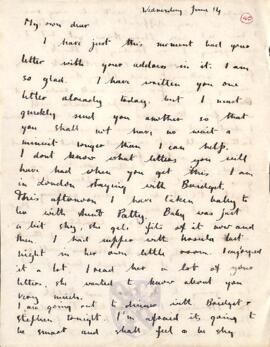 Wednesday June 14
40
My own dear
I have just this moment had your
letter with your address in it. I am
so glad. I have written you one
letter already today, but I must
quickly send you another so that
you shall not have to wait a
minute longer than I can help.
I dont know what letters you will
have had when you get this. I am
in London staying with Bridget.
This afternoon I have taken baby to
tea with Aunt Patty. Baby was just
a bit shy, she gets fits of it now and
then. I had supper with last
night in her own little room. I enjoyed
it a lot. I read her a lot of your
letters, she wanted to know about you
very much.
I am going out to dinner with Bridget &
Stephen tonight. I'm afraid its going to
be smart and shall feel so shy